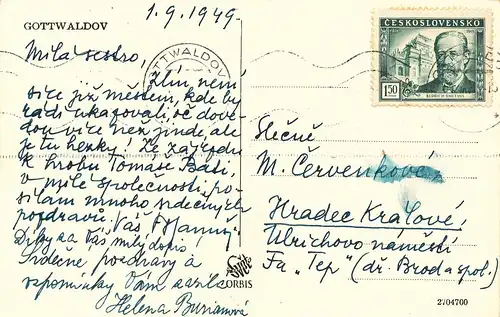 GOTTWALDOV
1.9.1949.
Milá sestro,
Zlín není
více již městem, kde by
rádi ukazovali, oč dove-
dou více než jinde, ale
je tu hezky! Ze zájezdu
k hrobu Tomáše Bati,
v milé společnosti, po-
sílám mnoho srdečných
pozdravů. Váš
Díky za Váš milý dopis!
Srdečné pozdravy a
vzpomínky Vám zasílá
Helena Burianová
GOTTWALDOV
ČESKOSLOVENSKO
1·50
BEDŘICH SMETANA
Slečně
M. Červenková
Hradec Králové,
Ulrichovo náměstí
Fa „Tep" (dř. Brod a spol.)
ORBIS
2704700